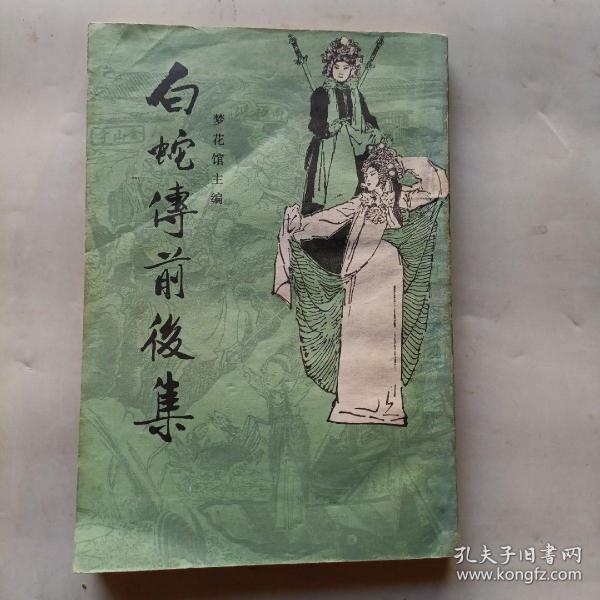 白蛇傳前後集
梦花馆主编
金山寺
孔夫子旧书网
www.kongfz.com